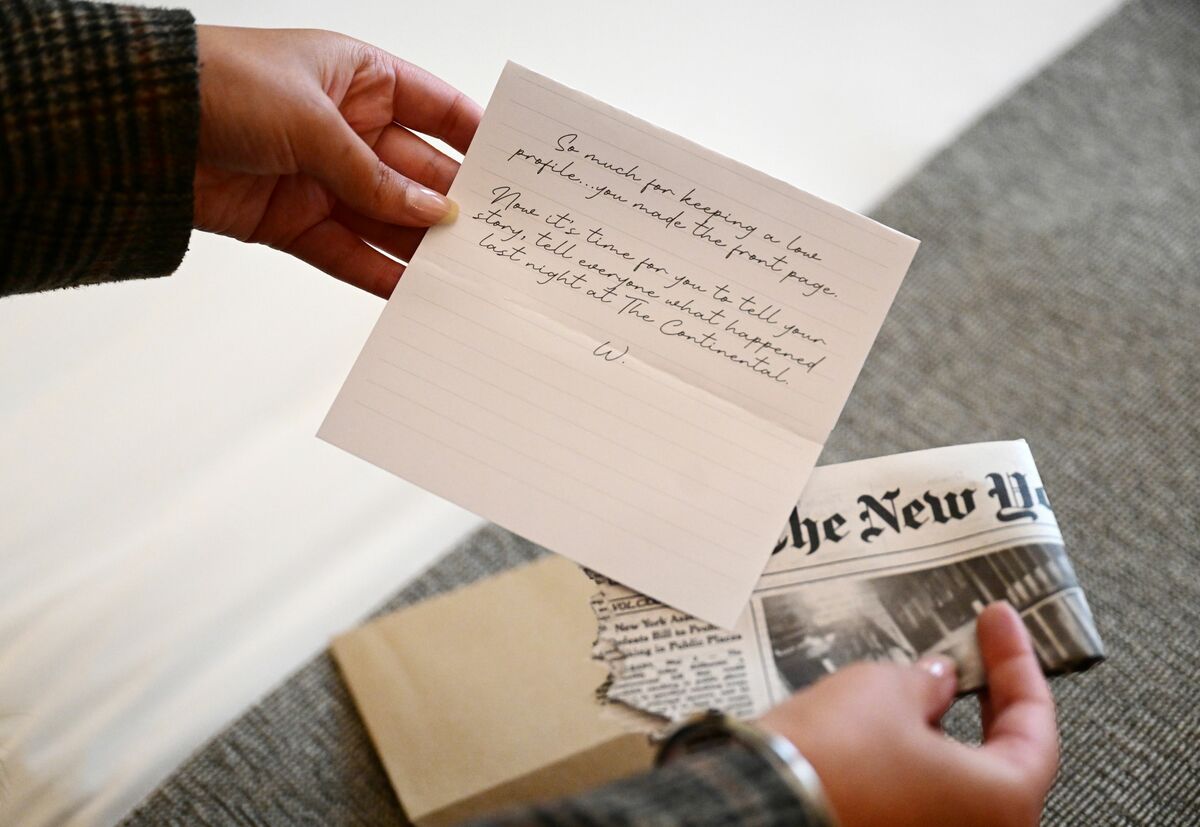 So much for keeping a low
profile...you made the front page.
Now it's time for you to tell your
story, tell everyone what happened
last night at The Continental.
W.
The New Yo
VOL.
New York
Bill to
in Public Places